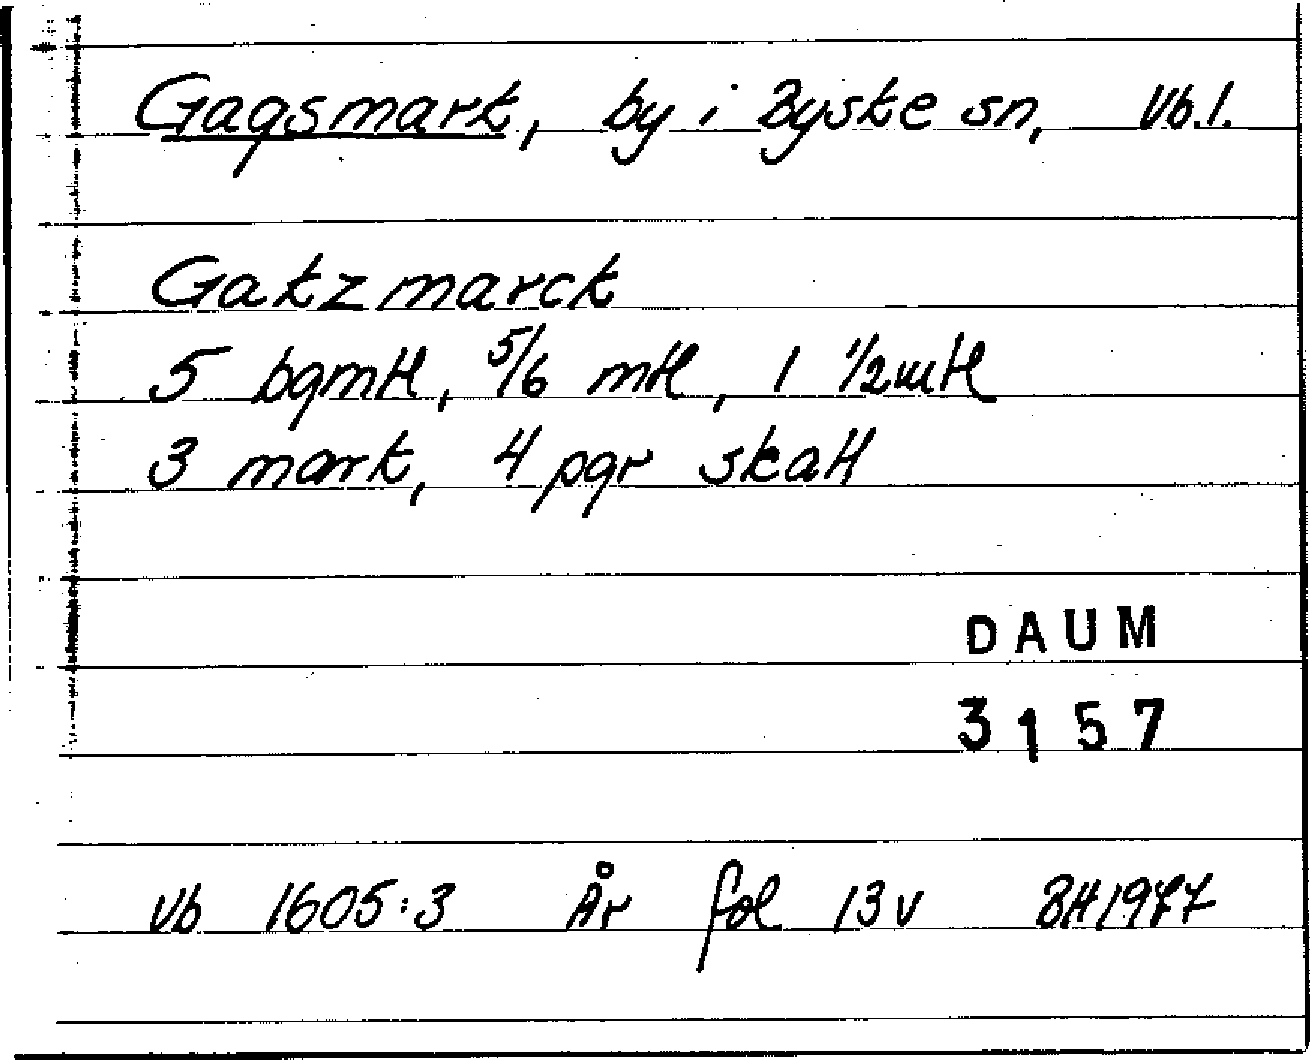 Gagsmark, by i Byske sn, Vb.l.
Gatzmarck
5 bgmtl, 5/6 mtl, 1 1/2 mtl
3 mark, 4 pgr skatt
DAUM
3157
Vb 1605:3 År fol 13v BH1977